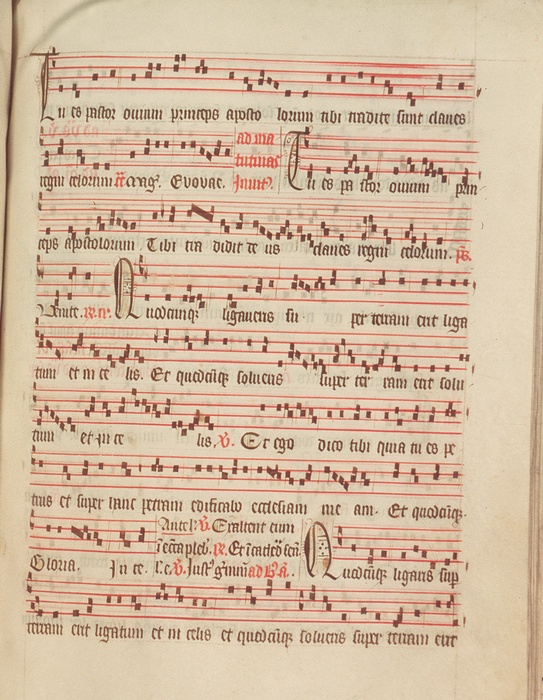 Tu es pastor ouium princeps aposto lorum tibi tradite sunt claues
regni celorum Mag. Evovae. ad ma tutinas Inuit. Tu es pa stor ouium prin
ceps apostolorum Tibi tra didit de us claues regni celorum. ps.
Venite. Quodcūqꝫ ligaueris su per terram erit liga
tum et in ce lis. Et quodcūqꝫ solueris super ter ram erit solu
tum et in ce lis. V. Et ego dico tibi quia tu es pe
trus et super hanc petram edificabo ecclesiam me am. Et quodcūqꝫ.
Gloria. In ce. Ante l V. Exaltent eum
Quodcūqꝫ ligaris sup
terram erit ligatum et in celis et quodcūqꝫ solueris super terram erit